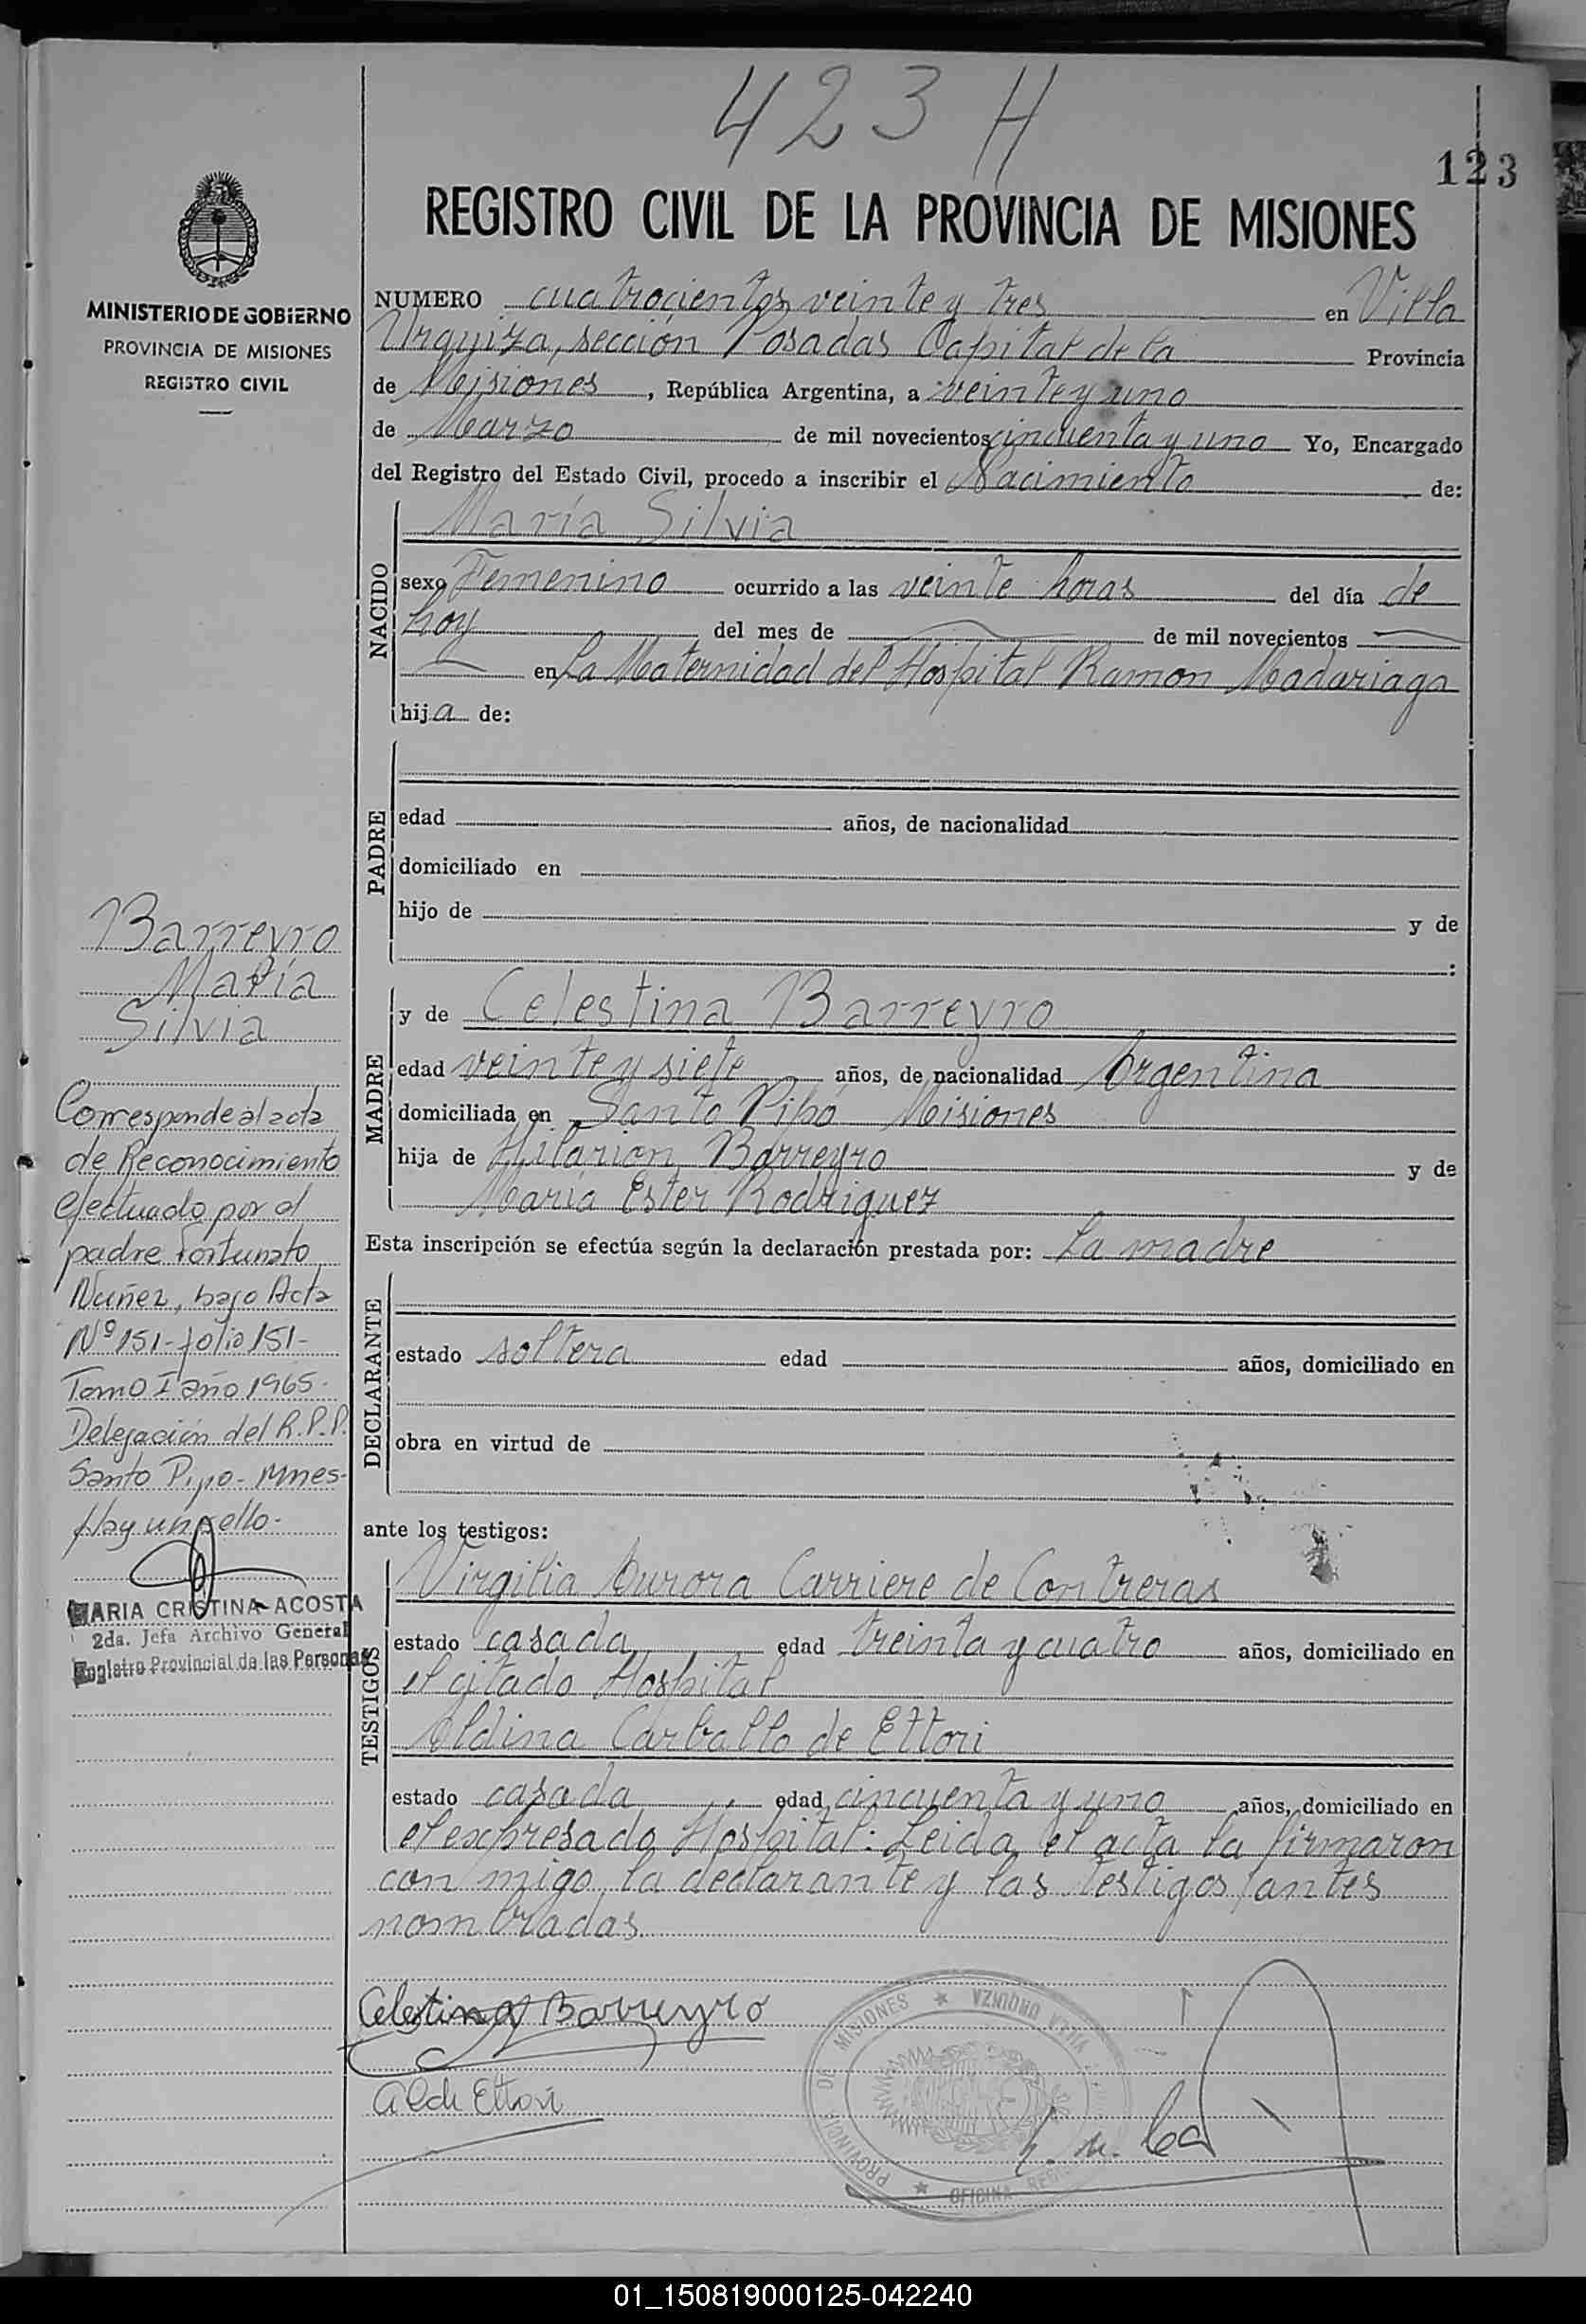 423 H
123
REGISTRO CIVIL DE LA PROVINCIA DE MISIONES
MINISTERIO DE GOBIERNO
PROVINCIA DE MISIONES
REGISTRO CIVIL
NUMERO cuatrocientos veinte y tres en Villa
Urquiza, sección Posadas Capital de la Provincia
de Misiones, República Argentina, a veinte y uno
de Marzo de mil novecientos cincuenta y uno Yo, Encargado
del Registro del Estado Civil, procedo a inscribir el Nacimiento de:
NACIDO
María Silvia
sexo Femenino ocurrido a las veinte horas del día de
hoy del mes de de mil novecientos
en La Maternidad del Hospital Ramon Madariaga
hija de:
PADRE
edad años, de nacionalidad
domiciliado en
hijo de y de
:
MADRE
y de Celestina Barreyro
edad veinte y siete años, de nacionalidad Argentina
domiciliada en Santo Pipó Misiones
hija de Hilarion Barreyro y de
María Ester Rodriguez
Esta inscripción se efectúa según la declaración prestada por: La madre
DECLARANTE
estado soltera edad años, domiciliado en
obra en virtud de
ante los testigos:
TESTIGOS
Virgilia Aurora Carriere de Contreras
estado casada edad treinta y cuatro años, domiciliado en
el citado Hospital
Aldina Carballo de Ettori
estado casada edad cincuenta y uno años, domiciliado en
el expresado Hospital: Leida el acta la firmaron
con migo, la declarante y las testigos antes
nombradas
Celestina Barreyro
Alda Ettori
PROVINCIA DE MISIONES ★ VILLA URQUIZA
★ OFICINA
Barreyro
María
Silvia
Corresponde al acta
de Reconocimiento
efectuado por el
padre Fortunato
Nuñez, bajo Acta
Nº 151-folio 151-
Tomo I año 1965-
Delegación del R.P.P.
Santo Pipo-Mnes-
Hay un sello-
MARIA CRISTINA ACOSTA
2da. Jefa Archivo General
Registro Provincial de las Personas
01_150819000125-042240